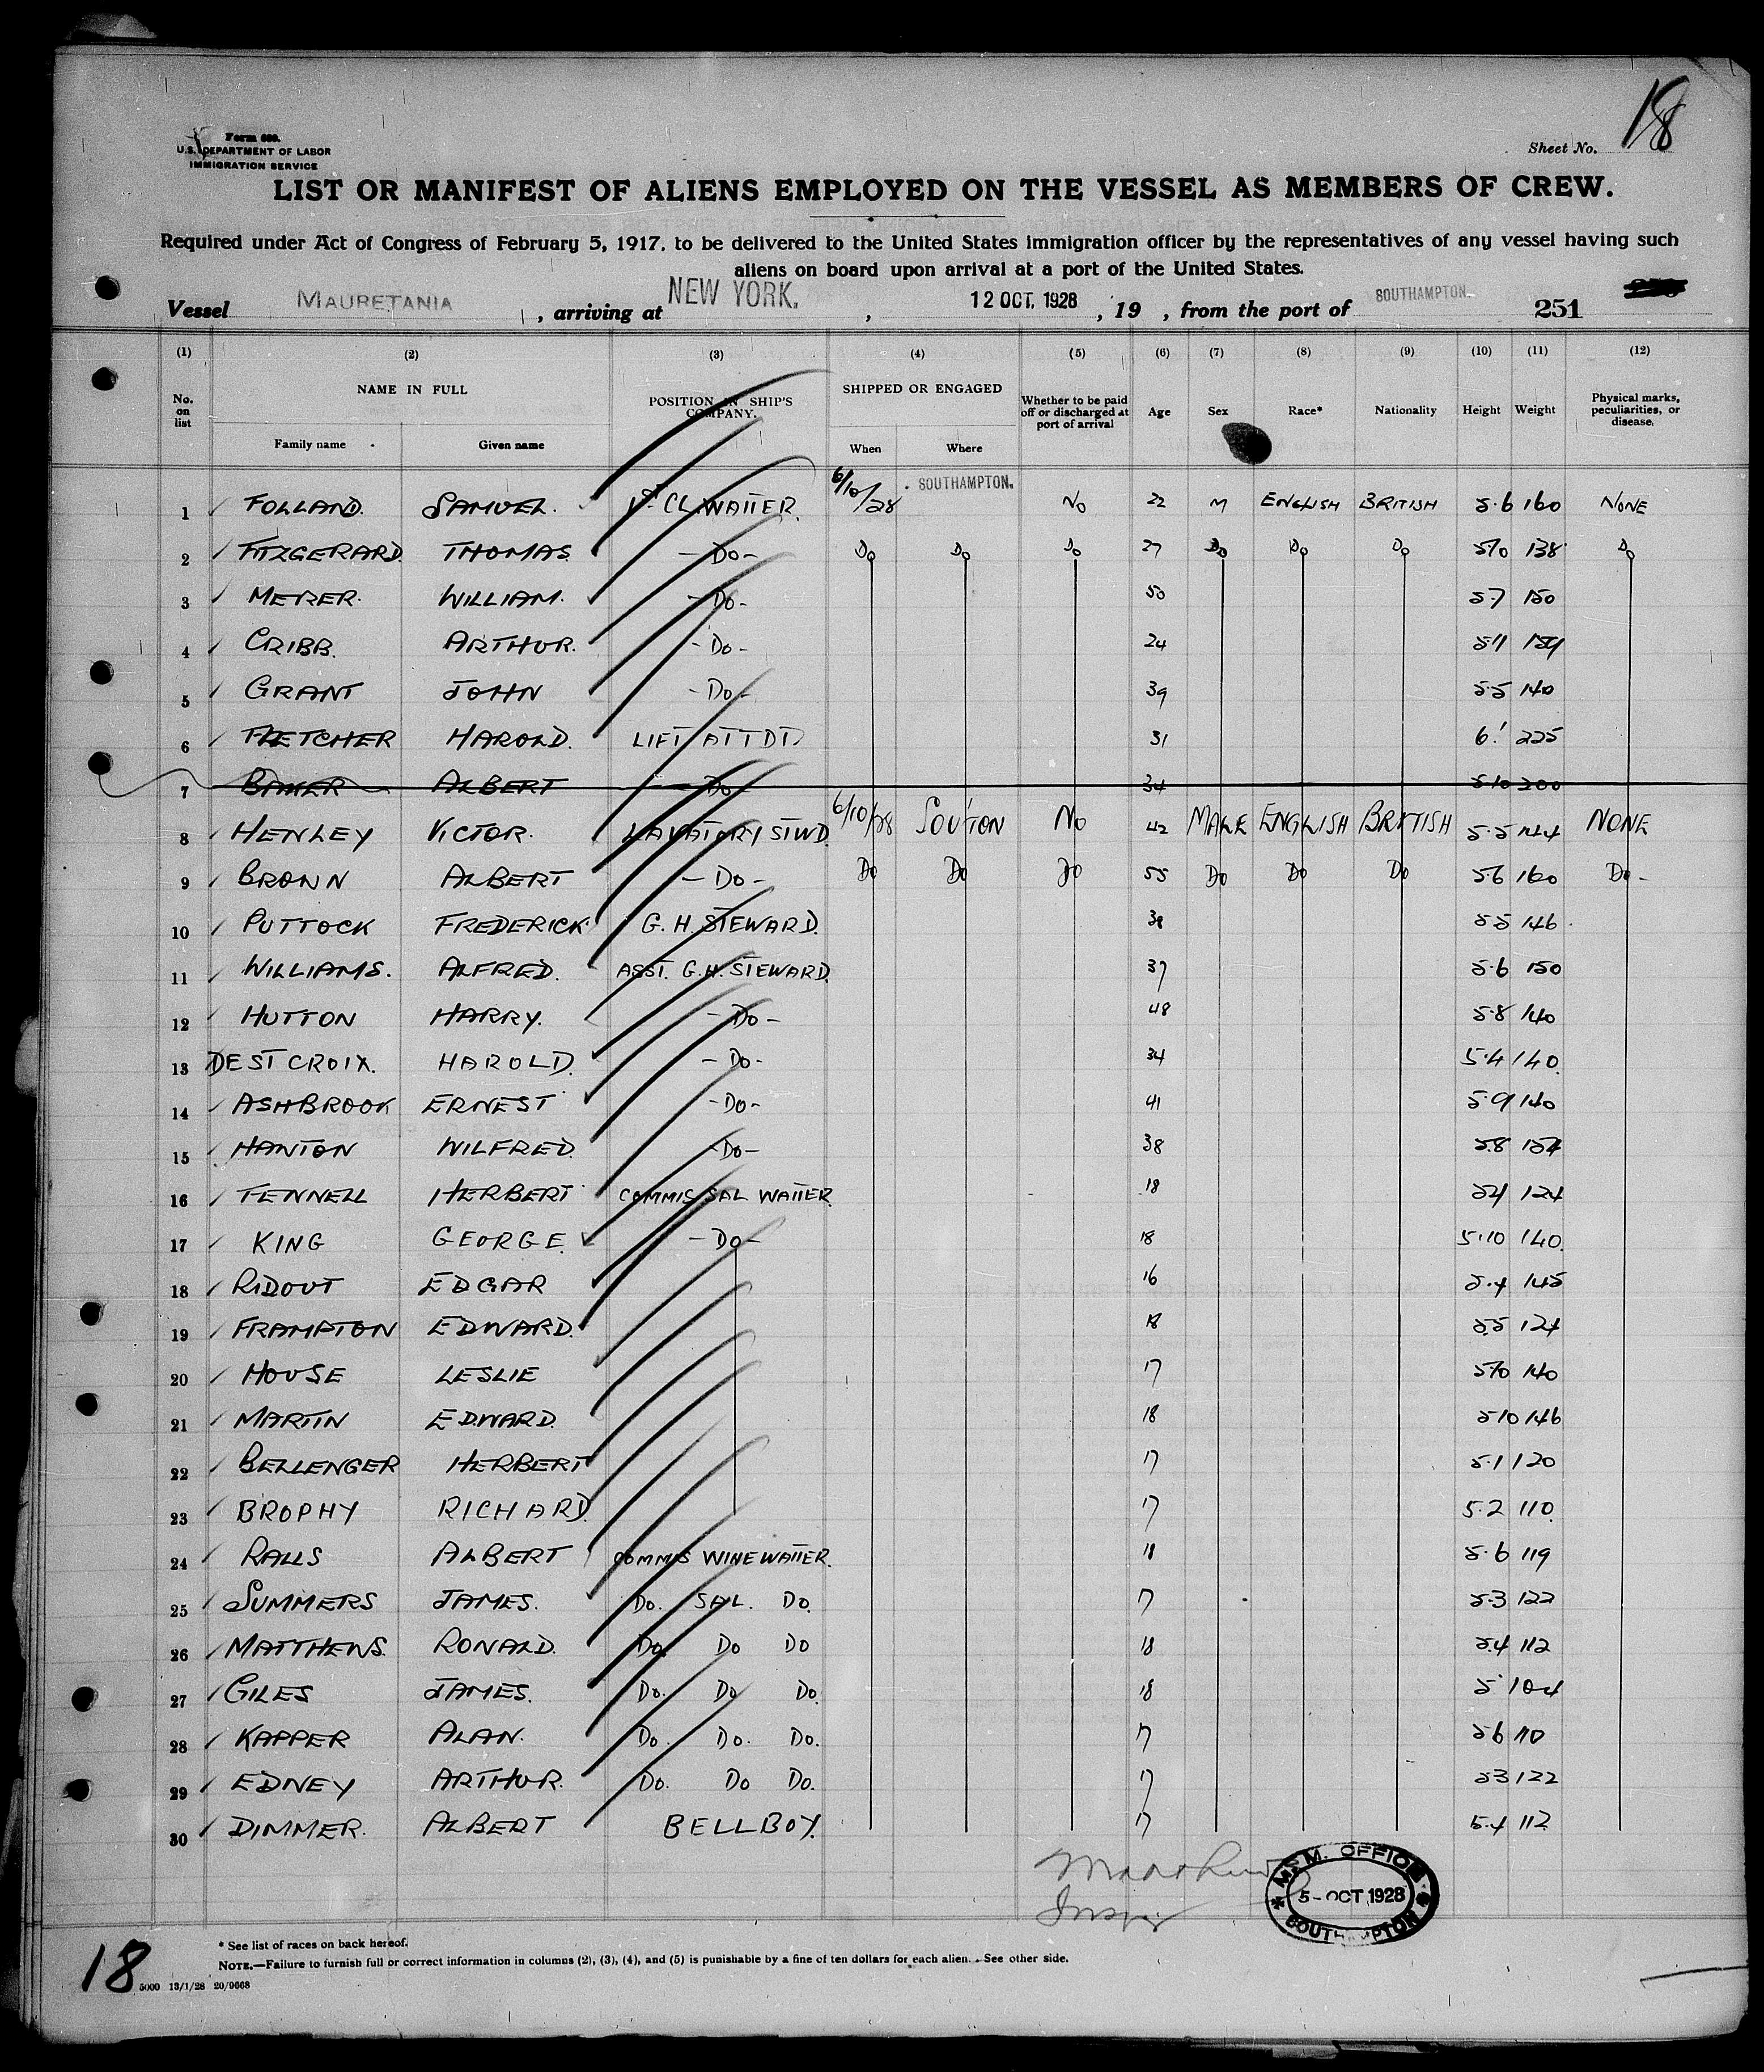 18
Form 680.
U.S. DEPARTMENT OF LABOR
IMMIGRATION SERVICE
Sheet No.
LIST OR MANIFEST OF ALIENS EMPLOYED ON THE VESSEL AS MEMBERS OF CREW.
Required under Act of Congress of February 5, 1917, to be delivered to the United States immigration officer by the representatives of any vessel having such
aliens on board upon arrival at a port of the United States.
Vessel MAURETANIA, arriving at NEW YORK, 12 OCT. 1928, 19 , from the port of SOUTHAMPTON. 251
(1) (2) (3) (4) (5) (6) (7) (8) (9) (10) (11) (12)
No. on list NAME IN FULL POSITION IN SHIP'S COMPANY. SHIPPED OR ENGAGED Whether to be paid off or discharged at port of arrival Age Sex Race* Nationality Height Weight Physical marks, peculiarities, or disease.
Family name Given name When Where
1 FOLLAND. SAMUEL. 1ST CL. WAITER. 6/10/28 SOUTHAMPTON. NO 22 M ENGLISH BRITISH 5.6 160 NONE
2 FITZGERARD. THOMAS. -DO- DO DO DO 27 DO DO DO 5/10 138 DO
3 METRER. WILLIAM. -DO- 50 5.7 150
4 CRIBB. ARTHUR. -DO- 24 5.11
5 GRANT JOHN -DO- 39 5.5 140
6 FLETCHER HAROLD. LIFT ATTDT. 31 6' 225
7 BAKER ALBERT DO 34 5.10 200
8 HENLEY VICTOR. LAVATORY STWD. 6/10/28 SOU'TON NO 42 MALE ENGLISH BRITISH 5.5 144 NONE
9 BROWN ALBERT -DO- DO DO DO 55 DO DO DO 5.6 160 DO-
10 PUTTOCK FREDERICK G. H. STEWARD. 38 5.5 146
11 WILLIAMS. ALFRED. ASST. G.H. STEWARD. 37 5.6 150
12 HUTTON HARRY. -DO- 48 5.8 140
13 DEST CROIX. HAROLD. -DO- 34 5.4 140.
14 ASHBROOK ERNEST -DO- 41 5.9 140
15 HANTON WILFRED. -DO- 38 5.8 154
16 FENNELL HERBERT COMMIS SAL WAITER. 18 5.4 124
17 KING GEORGE. -DO- 18 5.10 140.
18 RIDOUT EDGAR 16 5.4 145
19 FRAMPTON EDWARD. 18 5.5 124
20 HOUSE LESLIE 17 5/10 140
21 MARTIN EDWARD. 18 5.10 146
22 BELLENGER HERBERT 17 5.1 120
23 BROPHY RICHARD. 17 5.2 110.
24 RALLS ALBERT COMMIS WINE WAITER. 18 5.6 119
25 SUMMERS JAMES. DO. SAL. DO. 17 5.3 122
26 MATTHEWS. RONALD. DO. DO DO 18 5.4 112
27 GILES JAMES. DO. DO DO. 18 5 104
28 KAPPER ALAN. DO. DO. DO. 17 5.6 110
29 EDNEY ARTHUR. DO. DO DO. 17 5.3 122
30 DIMMER. ALBERT BELLBOY. 17 5.4 112
M.M. OFFICE
5-OCT 1928
SOUTHAMPTON
* See list of races on back hereof.
NOTE.—Failure to furnish full or correct information in columns (2), (3), (4), and (5) is punishable by a fine of ten dollars for each alien. See other side.
18
5000 13/1/28 20/9668